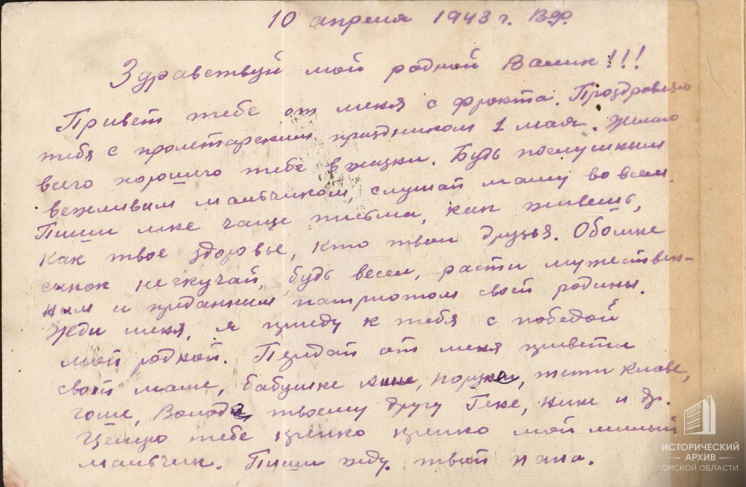 10 апреля 1943 г. В9р.
Здравствуй мой родной Валик!!!
Привет тебе от меня с фронта. Проздравляю
тебя с пролетарским праздником 1 мая. Желаю
всего хорошего тебе в жизни. Будь послушним
вежливим мальчиком, слушай маму во всем.
Пиши мне чаще письма, как живешь,
как твое здоровье, кто твои друзья. Обомне
сынок нескучай, будь весел, расти мужествен-
ным и преданним патриотом своей родины.
Жди меня, я приеду к тебя с победой
мой родной. Передай от меня приветы
своей маме, бабушке тети Клаве,
гоше, Володе, твоему другу Гене, Нине и др.
Целую тебе крепко крепко мой милый
мальчик. Пиши жду. твой папа.
ИСТОРИЧЕСКИЙ
АРХИВ
ОМСКОЙ ОБЛАСТИ